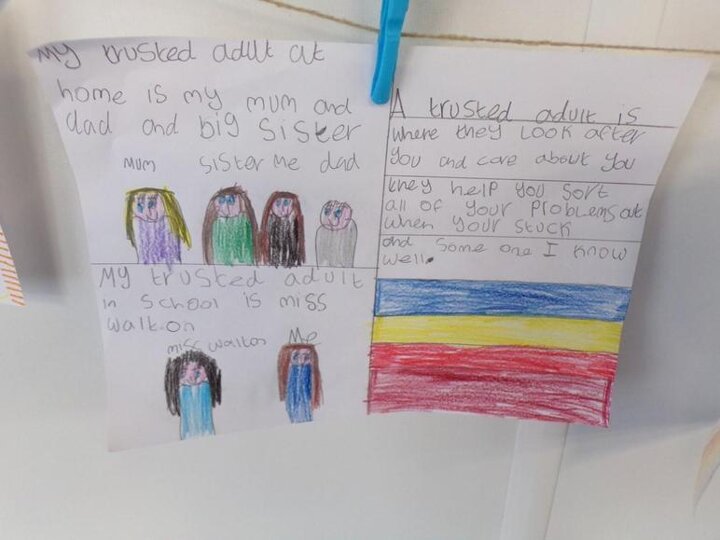 My trusted adult at
home is my mum and
dad and big sister
mum sister me dad
My trusted adult
in school is miss
walton
miss walton Me
A trusted adult is
where they look after
you and care about you
they help you sort
all of your problems out
when your stuck
and some one I know
well.